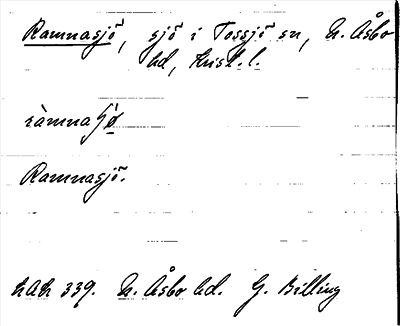 Ramnasjö, sjö i Tossjö sn, N. Åsbo
hd, Krist. l.
ràmnaʃø
Ramnasjö.
339. N. Åsbo hd. G. Billing